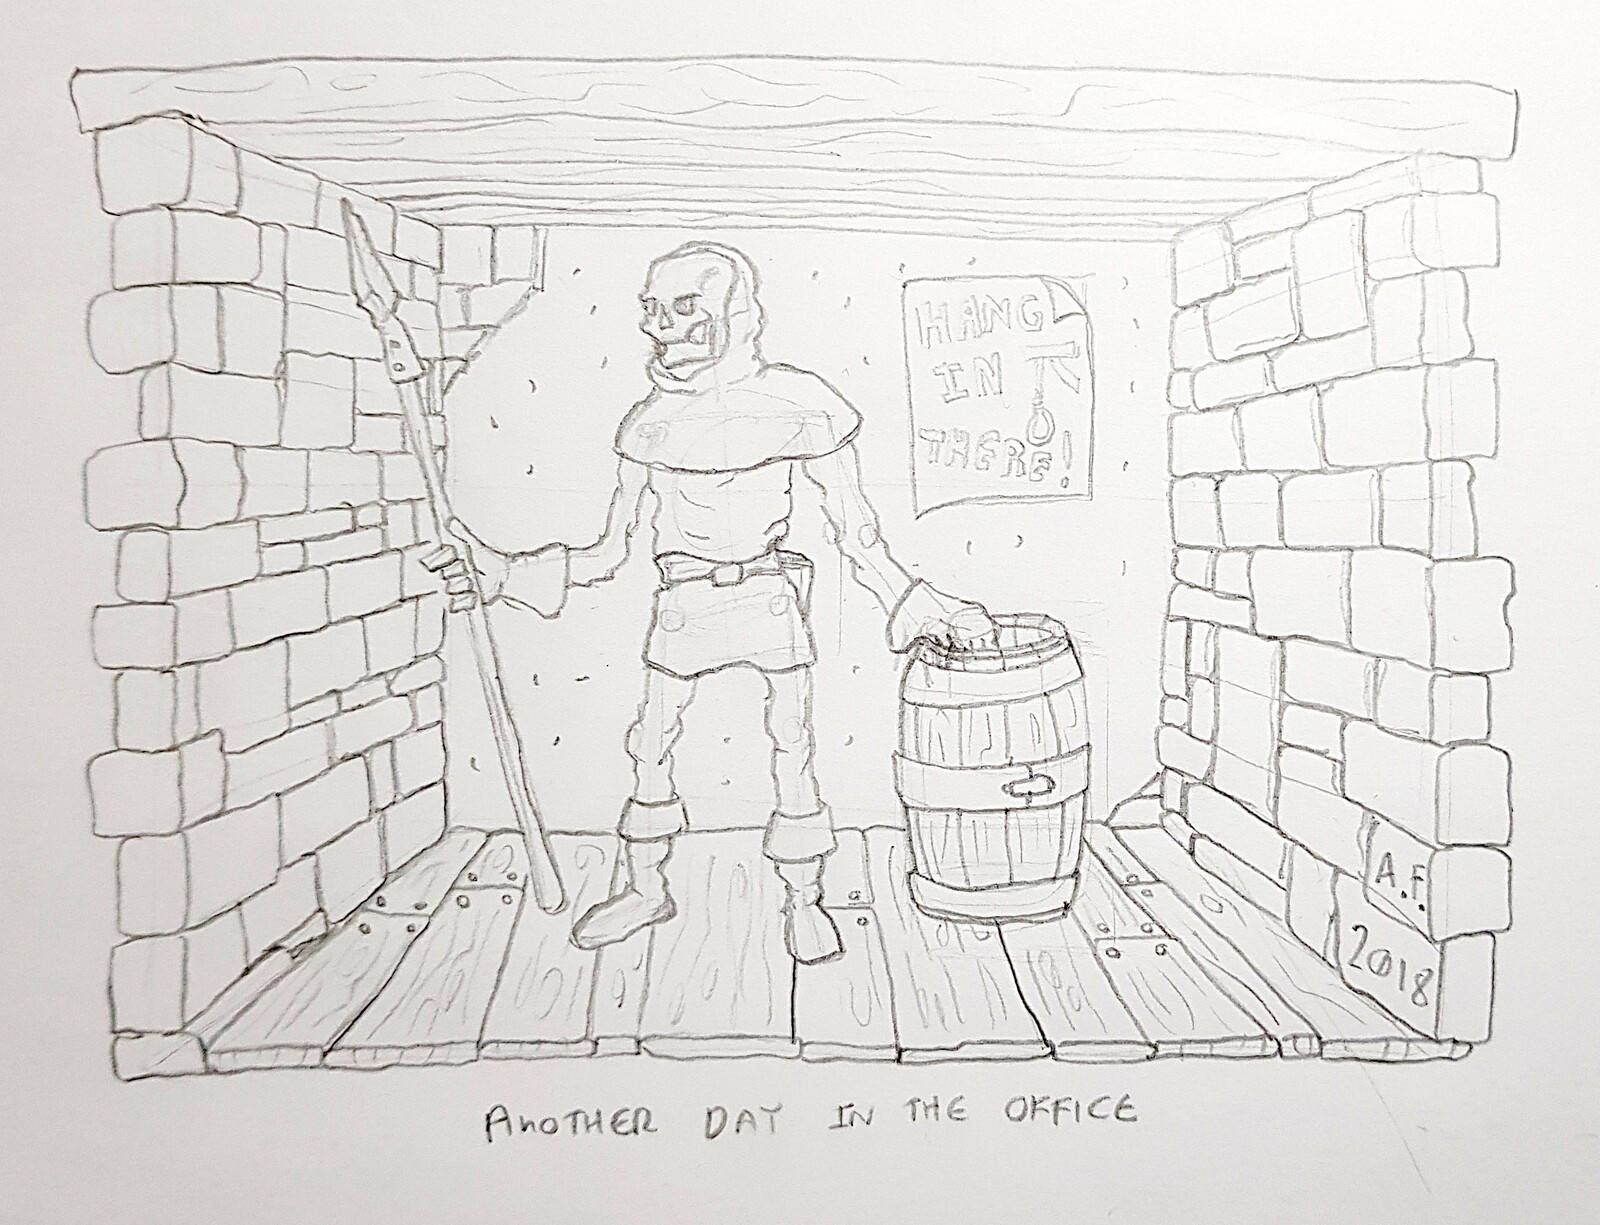 HANG
IN
THERE!
A.F.
2018
ANOTHER DAY IN THE OFFICE